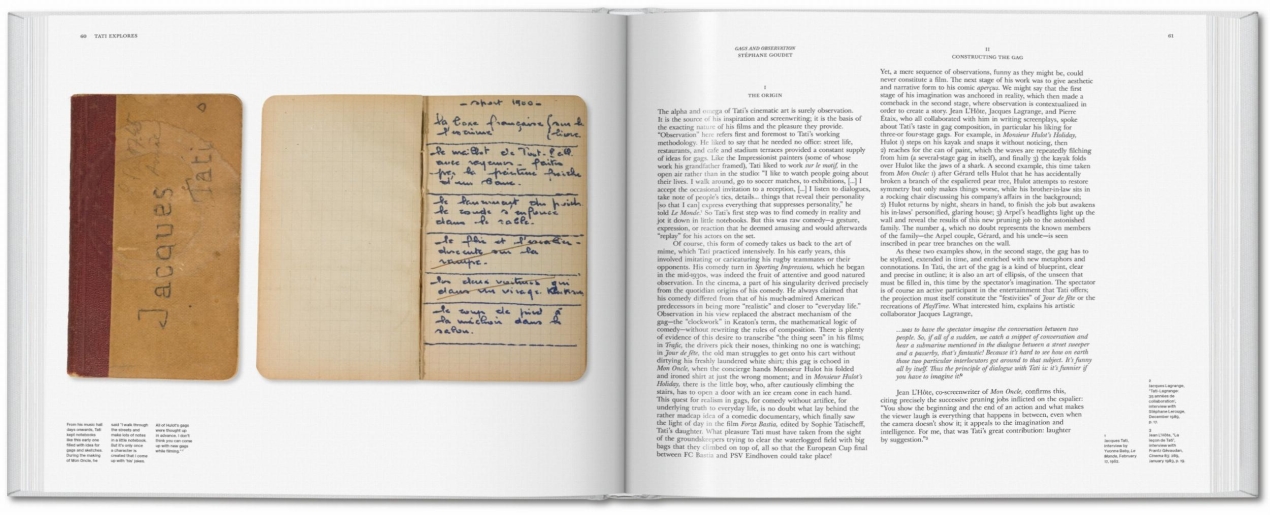 60 TATI EXPLORES
Jacques
Tati
- sport 1900 -
la boxe française
le filet et l'escalier
descente sur la
rampe.
les deux voitures qui
dans un virage
le coup de pied à
la mêchoir dans le
salon.
From his music hall
days onwards, Tati
kept notebooks
like this early one
filled with ideas for
gags and sketches.
During the making
of Mon Oncle, he
said "I walk through
the streets and
make lots of notes
in a little notebook.
But it's only once
a character is
created that I come
up with her jokes.
All of Hulot's gags
were thought up
in advance. I don't
think you can come
up with new gags
while filming."
61
GAGS AND OBSERVATION
STÉPHANE GOUDET
I
THE ORIGIN
The alpha and omega of Tati's cinematic art is surely observation.
It is the source of his inspiration and screenwriting; it is the basis of
the exacting nature of his films and the pleasure they provide.
"Observation" here refers first and foremost to Tati's working
methodology. He liked to say that he needed no office: street life,
restaurants, and café and stadium terraces provided a constant supply
of ideas for gags. Like the Impressionist painters (some of whose
work his grandfather framed), Tati liked to work sur le motif, in the
open air rather than in the studio: "I like to watch people going about
their lives. I walk around, go to soccer matches, to exhibitions, [...] I
accept the occasional invitation to a reception, [...] I listen to dialogues,
take note of people's tics, details... things that reveal their personality
[so that I can] express everything that suppresses personality," he
told Le Monde.¹ So Tati's first step was to find comedy in reality and
jot it down in little notebooks. But this was raw comedy—a gesture,
expression, or reaction that he deemed amusing and would afterwards
"replay" for his actors on the set.
Of course, this form of comedy takes us back to the art of
mime, which Tati practiced intensively. In his early years, this
involved imitating or caricaturing his rugby teammates or their
opponents. His comedy turn in Sporting Impressions, which he began
in the mid-1930s, was indeed the fruit of attentive and good natured
observation. In the cinema, a part of his singularity derived precisely
from the quotidian origins of his comedy. He always claimed that
his comedy differed from that of his much-admired American
predecessors in being more "realistic" and closer to "everyday life."
Observation in his view replaced the abstract mechanism of the
gag—the "clockwork" in Keaton's term, the mathematical logic of
comedy—without rewriting the rules of composition. There is plenty
of evidence of this desire to transcribe "the thing seen" in his films;
in Trafic, the drivers pick their noses, thinking no one is watching;
in Jour de fête, the old man struggles to get onto his cart without
dirtying his freshly laundered white shirt; this gag is echoed in
Mon Oncle, when the concierge hands Monsieur Hulot his folded
and ironed shirt at just the wrong moment; and in Monsieur Hulot's
Holiday, there is the little boy, who, after cautiously climbing the
stairs, has to open a door with an ice cream cone in each hand.
This quest for realism in gags, for comedy without artifice, for
underlying truth to everyday life, is no doubt what lay behind the
rather madcap idea of a comedic documentary, which finally saw
the light of day in the film Forza Bastia, edited by Sophie Tatischeff,
Tati's daughter. What pleasure Tati must have taken from the sight
of the groundskeepers trying to clear the waterlogged field with big
bags that they climbed on top of, all so that the European Cup final
between FC Bastia and PSV Eindhoven could take place!
II
CONSTRUCTING THE GAG
Yet, a mere sequence of observations, funny as they might be, could
never constitute a film. The next stage of his work was to give aesthetic
and narrative form to his comic aperçus. We might say that the first
stage of his imagination was anchored in reality, which then made a
comeback in the second stage, where observation is contextualized in
order to create a story. Jean L'Hôte, Jacques Lagrange, and Pierre
Étaix, who all collaborated with him in writing screenplays, spoke
about Tati's taste in gag composition, in particular his liking for
three-or four-stage gags. For example, in Monsieur Hulot's Holiday,
Hulot 1) steps on his kayak and snaps it without noticing, then
2) reaches for the can of paint, which the waves are repeatedly filching
from him (a several-stage gag in itself), and finally 3) the kayak folds
over Hulot like the jaws of a shark. A second example, this time taken
from Mon Oncle: 1) after Gérard tells Hulot that he has accidentally
broken a branch of the espaliered pear tree, Hulot attempts to restore
symmetry but only makes things worse, while his brother-in-law sits in
a rocking chair discussing his company's affairs in the background;
2) Hulot returns by night, shears in hand, to finish the job but awakens
his in-laws' personified, glaring house; 3) Arpel's headlights light up the
wall and reveal the results of this new pruning job to the astonished
family. The number 4, which no doubt represents the known members
of the family—the Arpel couple, Gérard, and his uncle—is seen
inscribed in pear tree branches on the wall.
As these two examples show, in the second stage, the gag has to
be stylized, extended in time, and enriched with new metaphors and
connotations. In Tati, the art of the gag is a kind of blueprint, clear
and precise in outline; it is also an art of ellipsis, of the unseen that
must be filled in, this time by the spectator's imagination. The spectator
is of course an active participant in the entertainment that Tati offers;
the projection must itself constitute the "festivities" of Jour de fête or the
recreations of PlayTime. What interested him, explains his artistic
collaborator Jacques Lagrange,
...was to have the spectator imagine the conversation between two
people. So, if all of a sudden, we catch a snippet of conversation and
hear a submarine mentioned in the dialogue between a street sweeper
and a passerby, that's fantastic! Because it's hard to see how on earth
those two particular interlocutors got around to that subject. It's funny
all by itself. Thus the principle of dialogue with Tati is: it's funnier if
you have to imagine it²
Jean L'Hôte, co-screenwriter of Mon Oncle, confirms this,
citing precisely the successive pruning jobs inflicted on the espalier:
"You show the beginning and the end of an action and what makes
the viewer laugh is everything that happens in between, even when
the camera doesn't show it; it appeals to the imagination and
intelligence. For me, that was Tati's great contribution: laughter
by suggestion."³
1
Jacques Tati,
interview by
Yvonne Baby, Le
Monde, February
2
Jacques Lagrange,
"Tati-Lagrange:
collaboration,"
interview with
Stéphane
December 1983,
3
Jean L'Hôte, "La
leçon de Tati",
interview with
Frantz Gévaudan,
Cinéma 83,
January 1983, p.